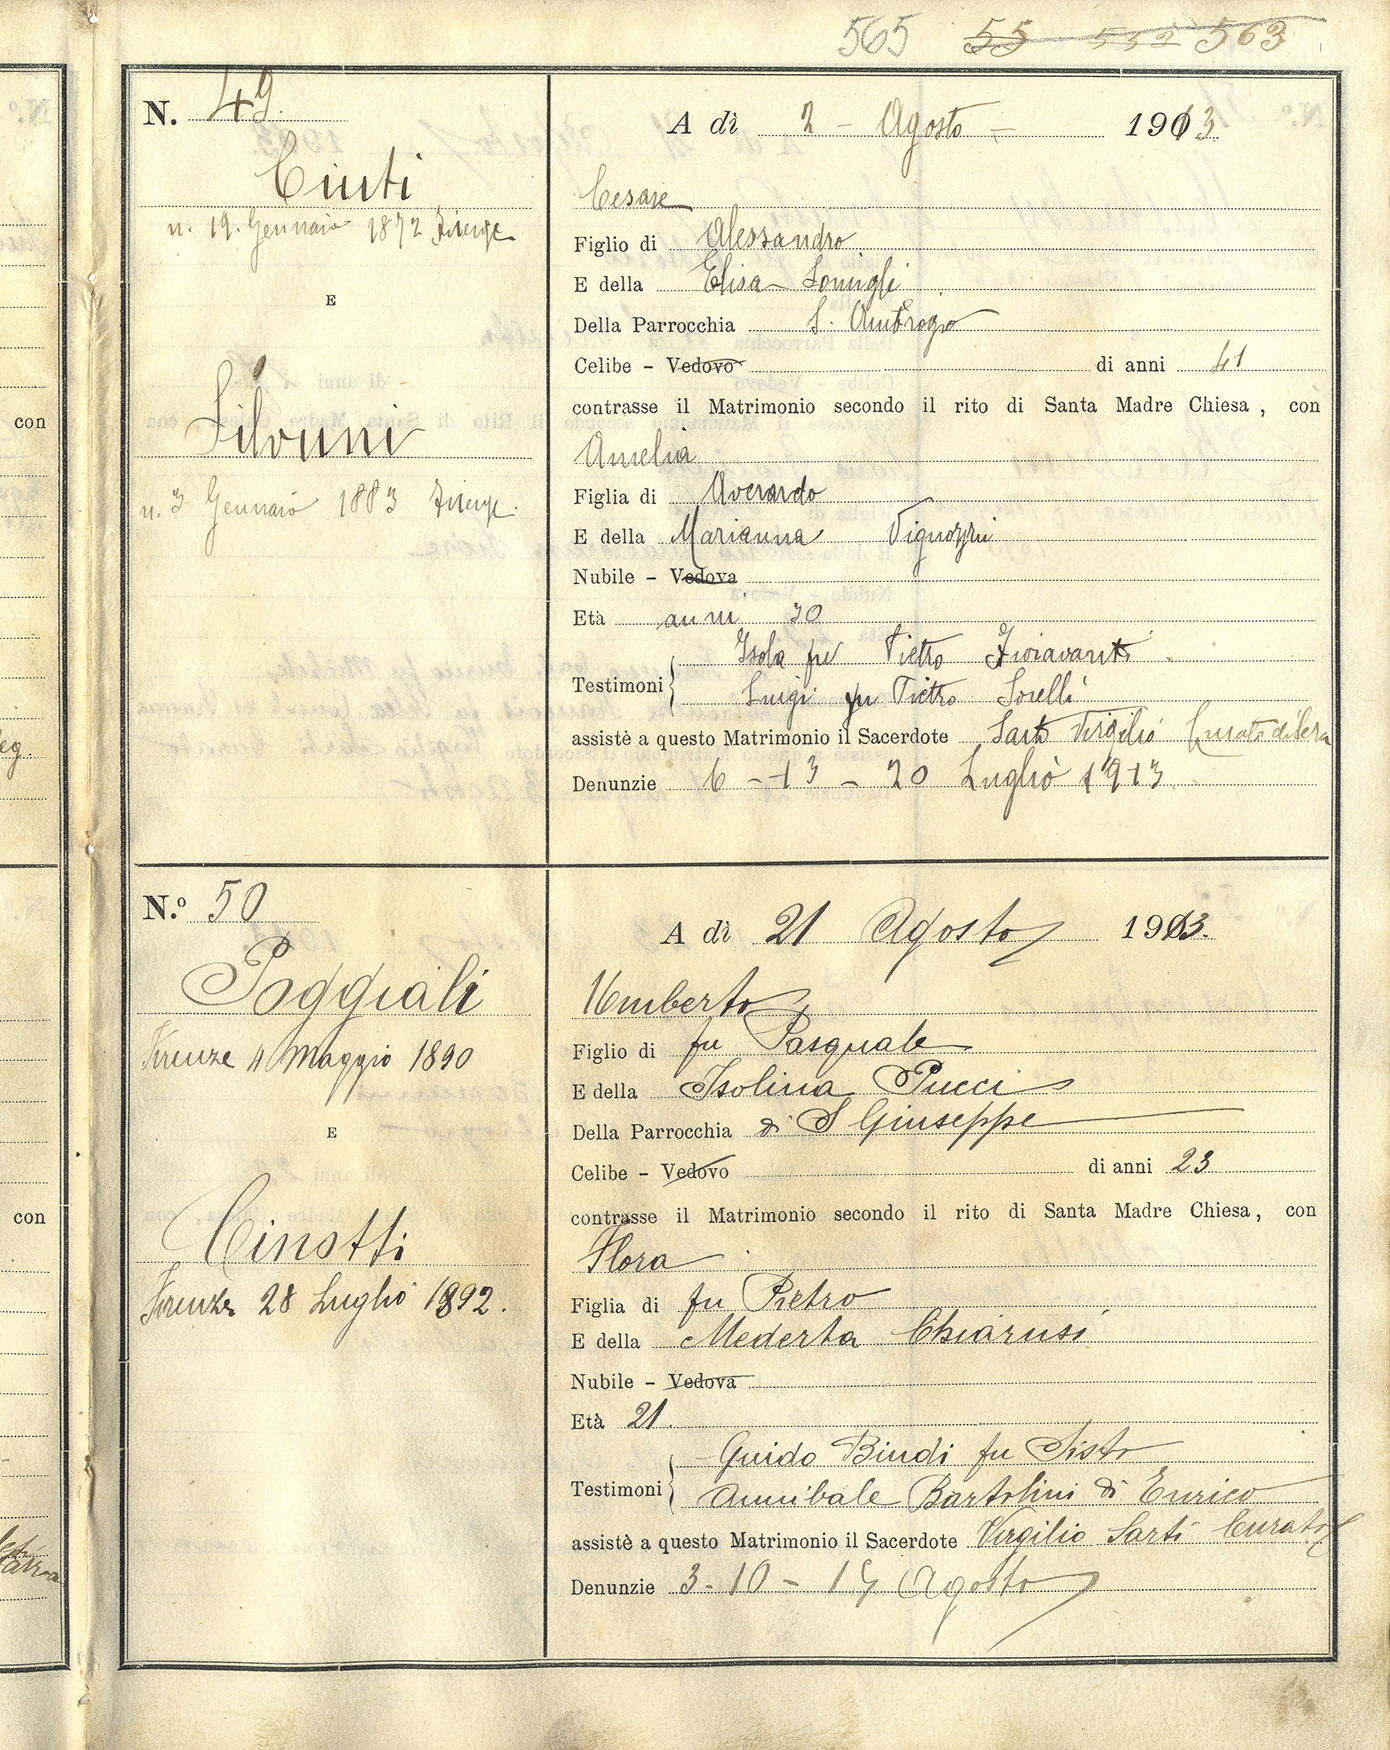 565 55 532 563
N. 49.
Ciuti
n. 19. Gennaio 1872 Firenze
E
Silvuni
n. 3 Gennaio 1883 Firenze.
A dì 2 - Agosto - 1903
Cesare
Figlio di Alessandro
E della Elisa Somigli
Della Parrocchia S. Ambrogio
Celibe - Vedovo di anni 41
contrasse il Matrimonio secondo il rito di Santa Madre Chiesa, con
Amelia
Figlia di Averardo
E della Marianna Vignozzi
Nubile - Vedova
Età anni 30
Testimoni Isola fu Pietro Fioravanti
Luigi fu Pietro Sorelli
assistè a questo Matrimonio il Sacerdote Sarti Virgilio Curato
Denunzie 6 - 13 - 20 Luglio 1913
N.º 50
Poggiali
Firenze 4 Maggio 1890
E
Cinotti
Firenze 28 Luglio 1892.
A dì 21 Agosto 1913.
Umberto
Figlio di fu Pasquale
E della Isolina Pucci
Della Parrocchia di S Giuseppe
Celibe - Vedovo di anni 23
contrasse il Matrimonio secondo il rito di Santa Madre Chiesa, con
Flora
Figlia di fu Pietro
E della Mederta Chiarusi
Nubile - Vedova
Età 21.
Testimoni Guido Bindi fu Sisto
Annibale Bartolini di Enrico
assistè a questo Matrimonio il Sacerdote Virgilio Sarti Curato
Denunzie 3 - 10 - 15 Agosto
con
eg.
con